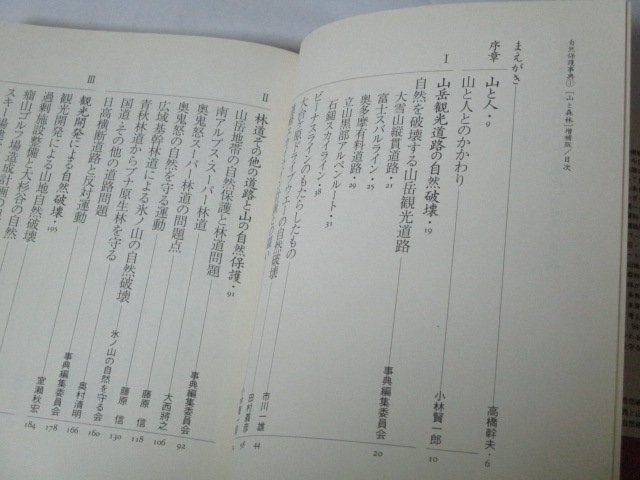 自然保護事典①「山と森林」増補版／目次
まえがき 高橋幹夫・6
序章 山と人・9
山と人とのかかわり 小林賢一郎 10
Ⅰ 山岳観光道路の自然破壊・19
自然を破壊する山岳観光道路 事典編集委員会 20
大雪山縦貫道路・21
富士スバルライン・25
奥多摩有料道路・29
立山黒部アルペンルート・31
石鎚スカイライン・38
ビーナスラインのもたらしたもの 市川一雄 44
大台ケ原ドライブウェーの自然破壊 田村義彦
Ⅱ 林道その他の道路と山の自然保護・91
山岳地帯の自然保護と林道問題 事典編集委員会 92
南アルプス・スーパー林道
奥鬼怒スーパー林道の問題点
奥鬼怒の自然を守る運動
広域基幹林道 大西 106
青秋林道からブナ原生林を守る 藤原 信 118
国道・その他の道路問題 藤原 信 130
日高横断道路と反対運動
氷ノ山の自然を守る会 160
Ⅲ 観光開発による自然破壊・195
観光開発による 奥村清明 166
過剰施設整備と大杉谷の自然 事典編集委員会 178
瘤山ゴルフ場造成 室瀬秋宏 184
スキー場